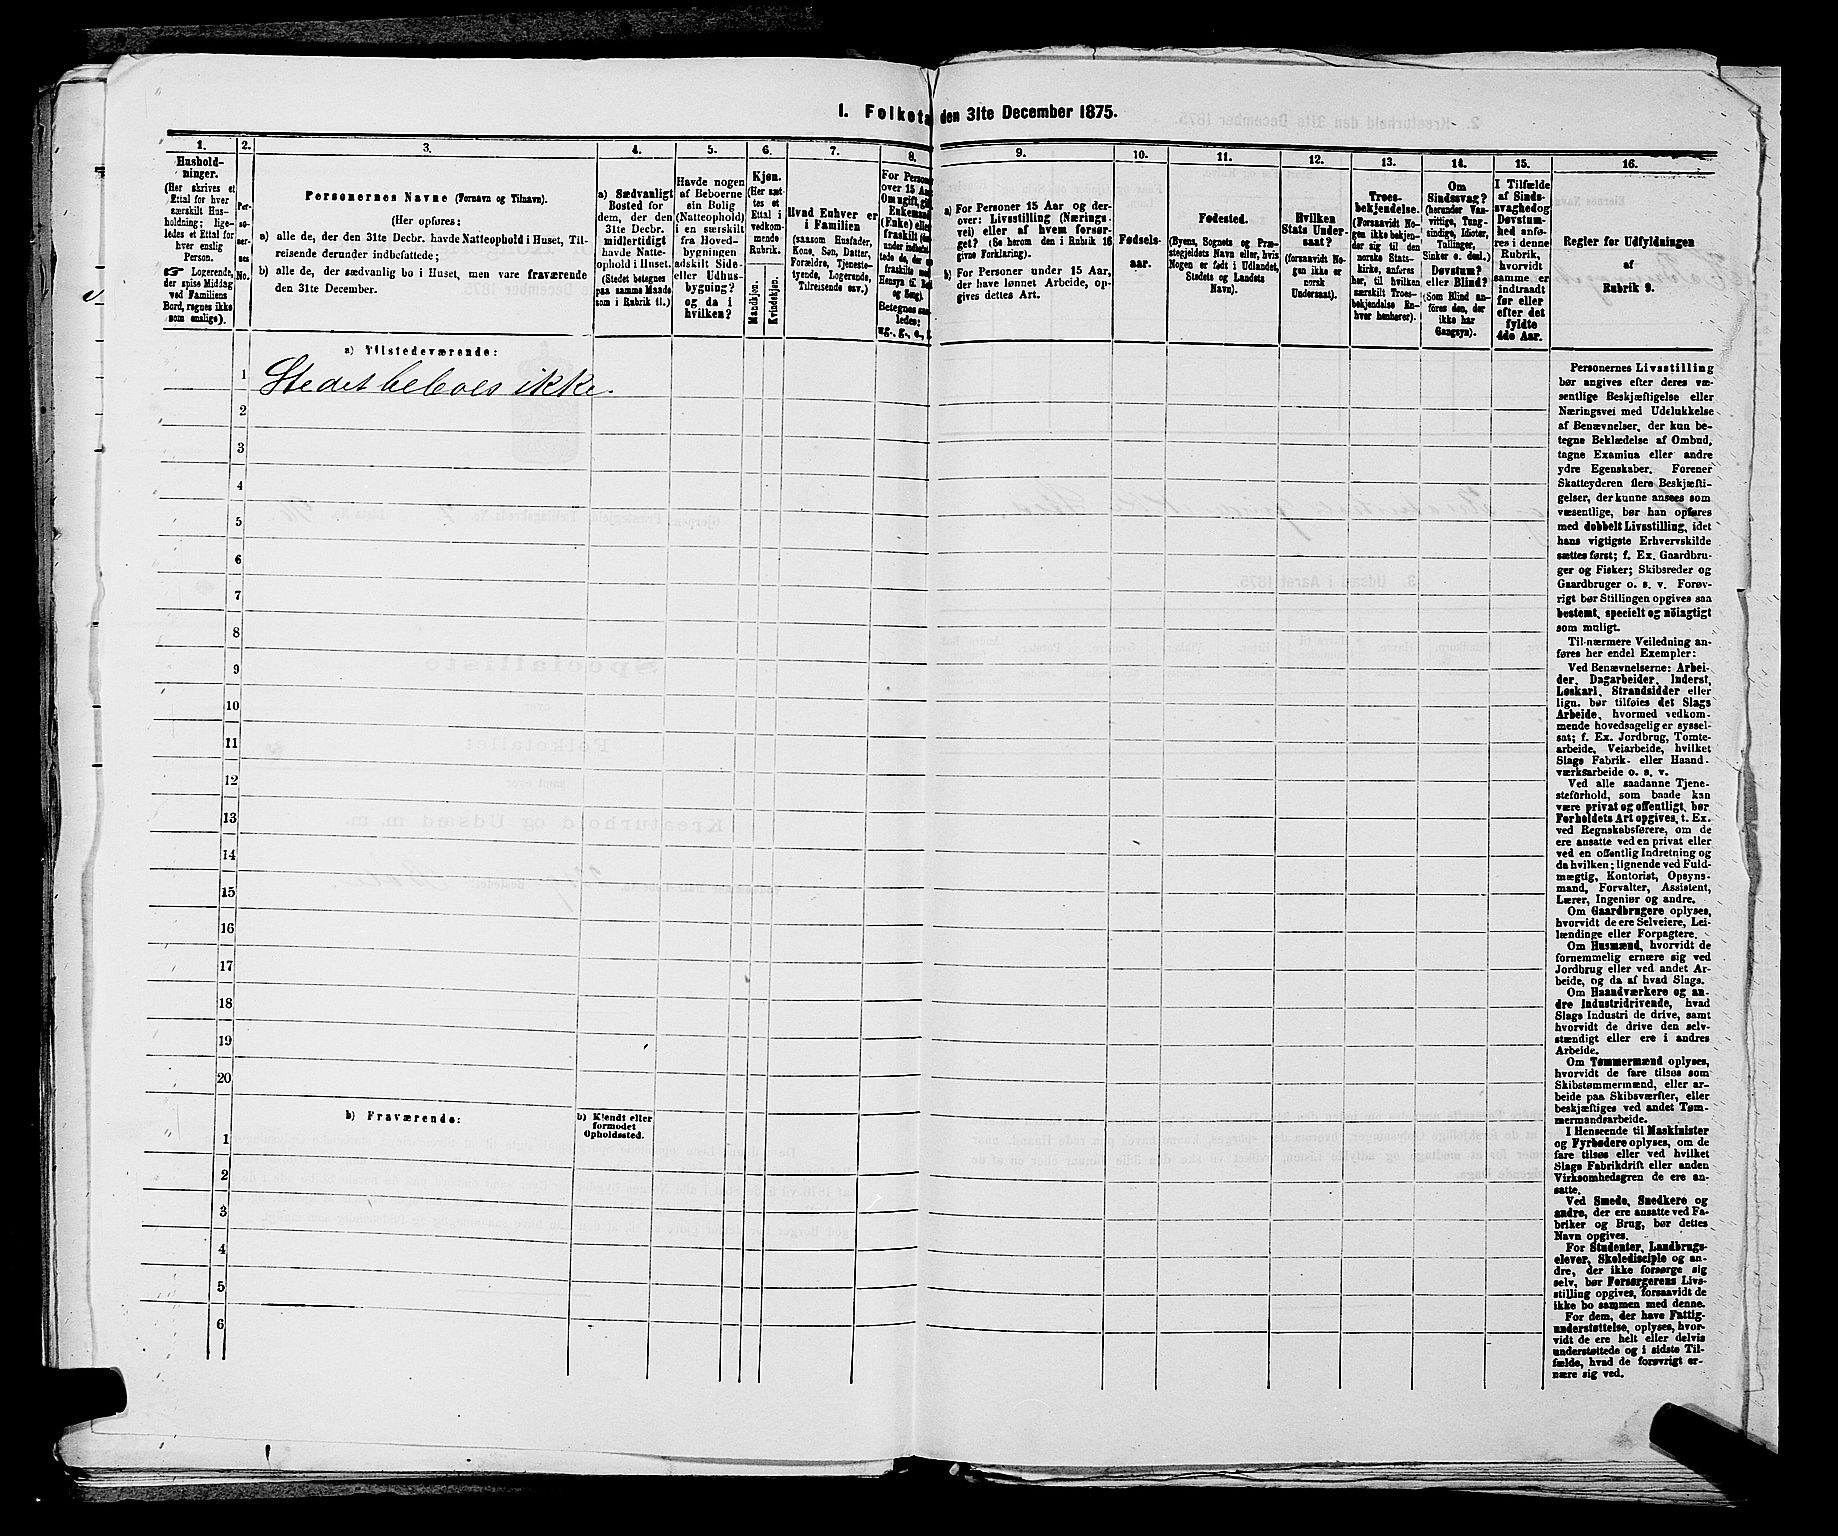 1. Folketa den 31te December 1875.
1.
Hushold-
ninger.
(Her skrives et
Ettal for hver
særskilt Hus-
holdning; lige-
ledes et Ettal for
hver enslig
Person.
☞ Logerende,
der spise Middag
ved Familiens
Bord, regnes ikke
som enslige).
2.
Per-
so-
ner-
nes
No.
3.
Personernes Navne (Fornavn og Tilnavn).
(Her opføres:
a) alle de, der den 31te Decbr. havde Natteophold i Huset, Til-
reisende derunder indbefattede;
b) alle de, der sædvanlig bo i Huset, men vare fraværende
den 31te December.
4.
a) Sædvanligt
Bosted for
dem, der den
31te Decbr.
midlertidigt
havde Natte-
ophold i Huset.
(Stedet betegnes
paa samme Maade
som i Rubrik 11.)
5.
Havde nogen
af Beboerne
sin Bolig
(Natteophold)
i en særskilt
fra Hoved-
bygningen
adskilt Side-
eller Udhus-
bygning?
og da i
hvilken?
6.
Kjøn.
(Her sæt-
tes et
Ettal i
vedkom-
mende
Rubrik.
Mandkjøn.
Kvindekjøn.
7.
Hvad Enhver er
i Familien
(saasom Husfader,
Kone, Søn, Datter,
Forældre, Tjeneste-
tyende, Logerende,
Tilreisende osv.)
8.
For Person
over 15 Aar
Om ugift, gift
Enkemand
(Enke) eller
fraskilt
Betegnes saa-
ledes:
ug., g., e.,
9.
a) For Personer 15 Aar og der-
over: Livsstilling (Nærings-
vei) eller af hvem forsør-
get? (Se herom den i Rubrik 16
givne Forklaring).
b) For Personer under 15 Aar,
der have lønnet Arbeide, op-
gives dettes Art.
10.
Fødsels-
aar.
11.
Fødested.
(Byens, Sognets og Præ-
stegjeldets Navn eller, hvis
Nogen er født i Udlandet,
Stedets og Landets
Navn).
12.
Hvilken
Stats Under-
saat?
(forsaavidt No-
gen ikke er
norsk
Undersaat).
13.
Troes-
bekjendelse.
(Forsaavidt No-
gen ikke bekjen-
der sig til den
norske Stats-
kirke, anføres
her, til hvilken
særskilt Troes-
bekjendelse En-
hver henhører).
14.
Om
Sindssvag?
(herunder Van-
vittige, Tung-
sindige, Idioter,
Tullinger,
Sinker o. desl.)
Døvstum?
eller Blind?
(Som Blind an-
føres den, der
ikke har
Gangsyn).
15.
I Tilfælde
af Sinds-
svaghed og
Døvstum-
hed anfø-
res i denne
Rubrik,
hvorvidt
samme er
indtraadt
før eller
efter det
fyldte
4de Aar.
16.
Regler for Udfyldningen
af
Rubrik 9.
a) Tilstedeværende:
1 Stedet beboes ikke.
2
3
4
5
6
7
8
9
10
11
12
13
14
15
16
17
18
19
20
b) Fraværende:
b) Kjendt eller
formodet
Opholdssted.
1
2
3
4
5
6
Personernes Livsstilling
bør angives efter deres væ-
sentlige Beskjæftigelse eller
Næringsvei med Udelukkelse
af Benævnelser, der kun be-
tegne Beklædelse af Ombud,
tagne Examina eller andre
ydre Egenskaber. Forener
Skatteyderen flere Beskjæfti-
gelser, der kunne ansees som
væsentlige, bør han opføres
med dobbelt Livsstilling, idet
hans vigtigste Erhvervskilde
sættes først; f. Ex. Gaardbru-
ger og Fisker; Skibsreder og
Gaardbruger o. s. v. Forøv-
rigt bør Stillingen opgives saa
bestemt, specielt og nöiagtigt
som muligt.
Til nærmere Veiledning an-
føres her endel Exempler:
Ved Benævnelserne: Arbei-
der, Dagarbeider, Inderst,
Løskarl, Strandsidder eller
lign. bør tilføies det Slags
Arbeide, hvormed vedkom-
mende hovedsagelig er syssel-
sat; f. Ex. Jordbrug, Tomte-
arbeide, Veiarbeide, hvilket
Slags Fabrik- eller Haand-
værksarbeide o. s. v.
Ved alle saadanne Tjene-
steforhold, som baade kan
være privat og offentligt, bør
Forholdets Art opgives, t. Ex.
ved Regnskabsførere, om de
ere ansatte ved en privat eller
ved en offentlig Indretning og
da hvilken; lignende ved Fuld-
mægtig, Kontorist, Opsyns-
mand, Forvalter, Assistent,
Lærer, Ingeniør og andre.
Om Gaardbrugere oplyses,
hvorvidt de ere Selveiere, Lei-
lændinge eller Forpagtere.
Om Husmænd, hvorvidt de
fornemmelig ernære sig ved
Jordbrug eller ved andet Ar-
beide, og da af hvad Slags.
Om Haandværkere og an-
dre Industridrivende, hvad
Slags Industri de drive, samt
hvorvidt de drive den selv-
stændigt eller ere i andres
Arbeide.
Om Tømmermænd oplyses,
hvorvidt de fare tilsøs som
Skibstømmermænd, eller ar-
beide paa Skibsværfter, eller
beskjæftiges ved andet Tøm-
mermandsarbeide.
I Henseende til Maskinister
og Fyrbødere oplyses, om de
fare tilsøs eller ved hvilket
Slags Fabrikdrift eller anden
Virksomhedsgren de ere an-
satte.
Ved Smede, Snedkere og
andre, der ere ansatte ved Fa-
briker og Brug, bør dettes
Navn opgives.
For Studenter, Landbrugs-
elever, Skoledisciple og an-
dre, der ikke forsørge sig
selv, bør Forsørgerens Livs-
stilling opgives, forsaavidt de
ikke bo sammen med denne.
For dem, der have Fattig-
understøttelse, oplyses, hvor-
vidt de ere helt eller delvis
understøttede og i sidste Til-
fælde, hvad de forøvrigt er-
nære sig ved.